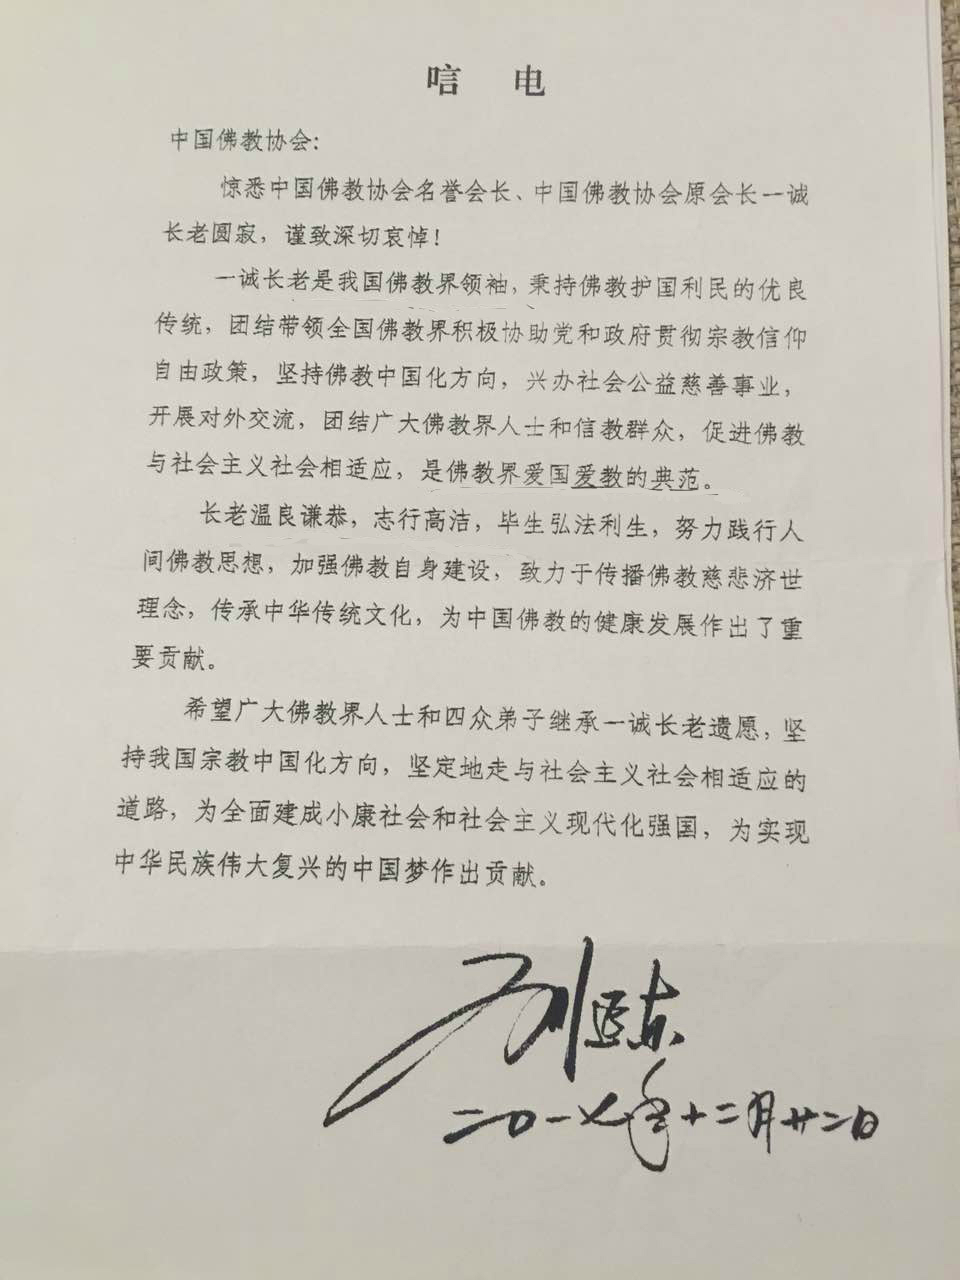 唁 电
中国佛教协会：
惊悉中国佛教协会名誉会长、中国佛教协会原会长一诚
长老圆寂，谨致深切哀悼！
一诚长老是我国佛教界领袖，秉持佛教护国利民的优良
传统，团结带领全国佛教界积极协助党和政府贯彻宗教信仰
自由政策，坚持佛教中国化方向，兴办社会公益慈善事业，
开展对外交流，团结广大佛教界人士和信教群众，促进佛教
与社会主义社会相适应，是佛教界爱国爱教的典范。
长老温良谦恭，志行高洁，毕生弘法利生，努力践行人
间佛教思想，加强佛教自身建设，致力于传播佛教慈悲济世
理念，传承中华传统文化，为中国佛教的健康发展作出了重
要贡献。
希望广大佛教界人士和四众弟子继承一诚长老遗愿，坚
持我国宗教中国化方向，坚定地走与社会主义社会相适应的
道路，为全面建成小康社会和社会主义现代化强国，为实现
中华民族伟大复兴的中国梦作出贡献。
刘延东
二〇一七年十二月廿二日